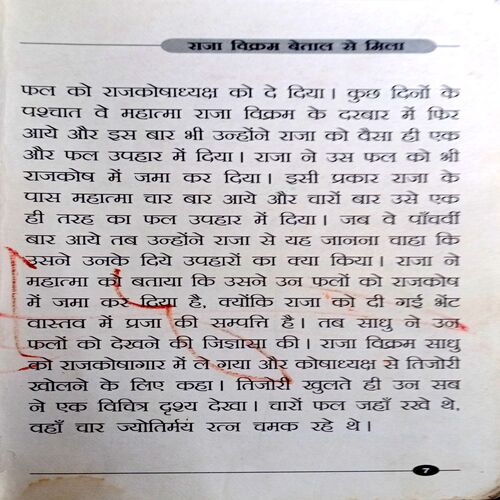 राजा विक्रम बेताल से मिला
फल को राजकोषाध्यक्ष को दे दिया। कुछ दिनों के
पश्चात वे महात्मा राजा विक्रम के दरबार में फिर
आये और इस बार भी उन्होंने राजा को वैसा ही एक
और फल उपहार में दिया। राजा ने उस फल को भी
राजकोष में जमा कर दिया। इसी प्रकार राजा के
पास महात्मा चार बार आये और चारों बार उसे एक
ही तरह का फल उपहार में दिया। जब वे पाँचवीं
बार आये तब उन्होंने राजा से यह जानना चाहा कि
उसने उनके दिये उपहारों का क्या किया। राजा ने
महात्मा को बताया कि उसने उन फलों को राजकोष
में जमा कर दिया है, क्योंकि राजा को दी गई भेंट
वास्तव में प्रजा की सम्पत्ति है। तब साधु ने उन
फलों को देखने की जिज्ञासा की। राजा विक्रम साधु
को राजकोषागार में ले गया और कोषाध्यक्ष से तिजोरी
खोलने के लिए कहा। तिजोरी खुलते ही उन सब
ने एक विचित्र दृश्य देखा। चारों फल जहाँ रखे थे,
वहाँ चार ज्योतिर्मय रत्न चमक रहे थे।
7